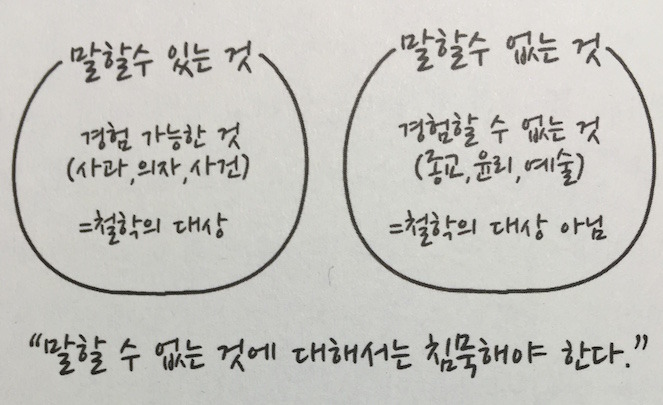 말할수 있는 것
경험 가능한 것
(사과,의자,사건)
=철학의 대상
말할수 없는 것
경험할 수 없는 것
(종교,윤리,예술)
=철학의 대상 아님
“말할 수 없는 것에 대해서는 침묵해야 한다.”